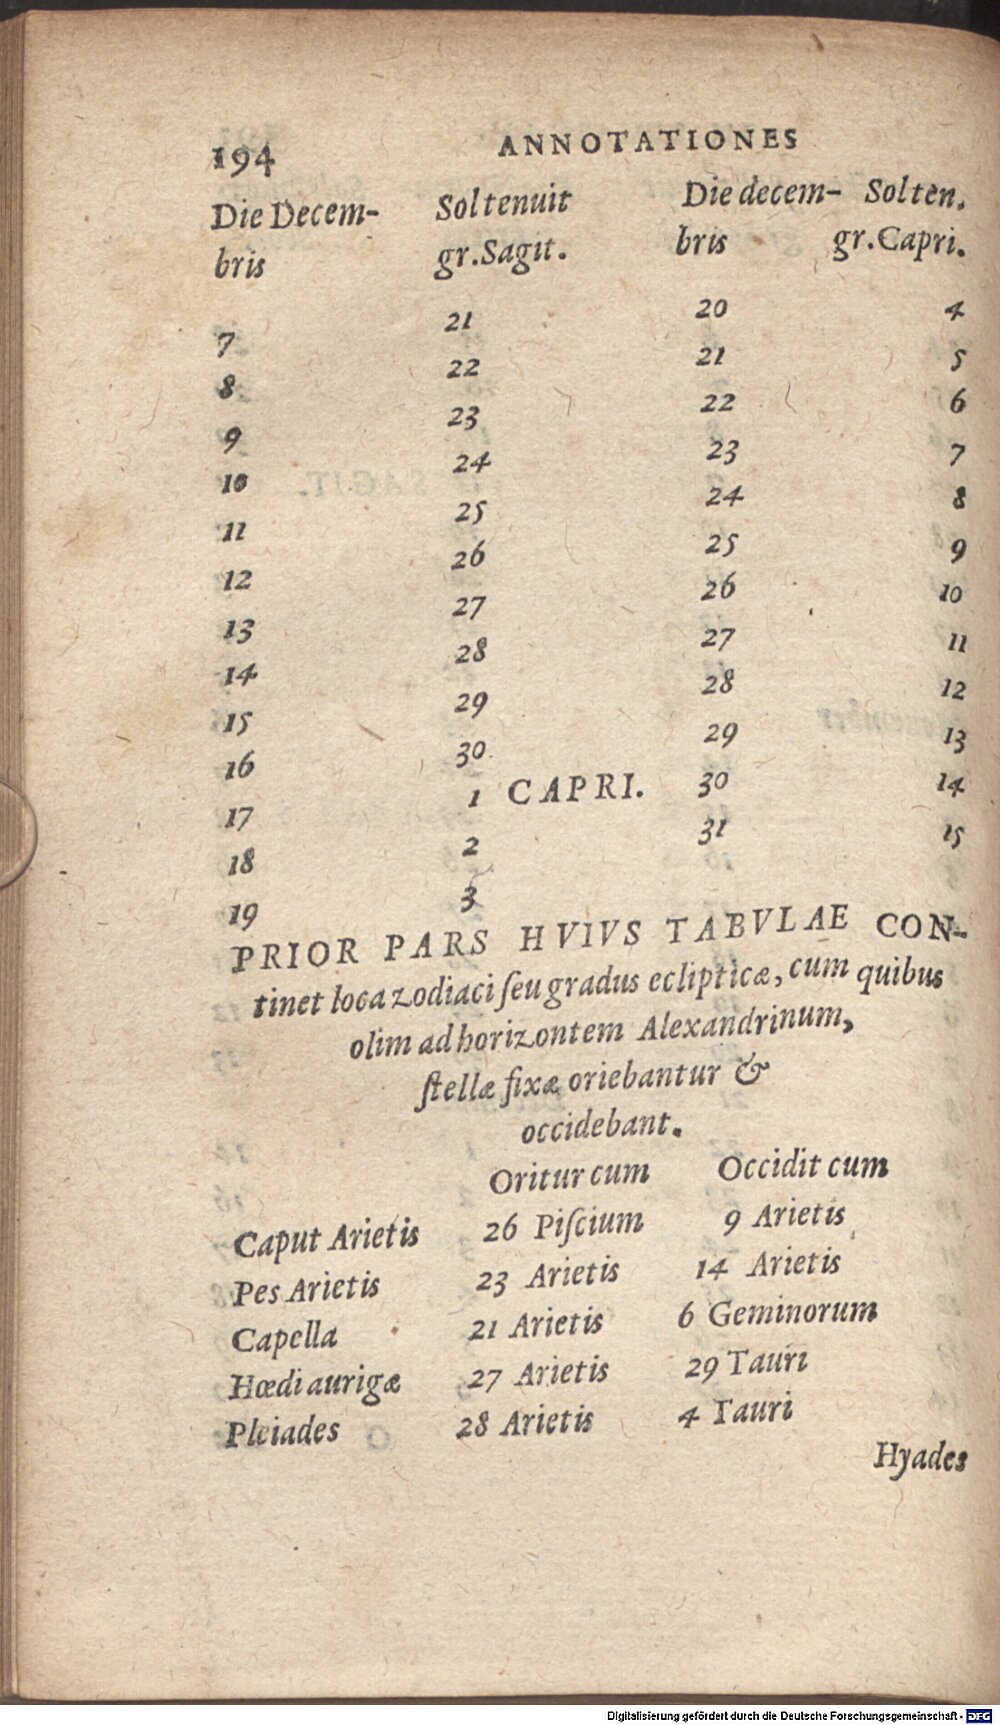 194 ANNOTATIONES
Die Decem- Sol tenuit Die decem- Sol ten.
bris gr. Sagit. bris gr. Capri.
7 21 20 4
8 22 21 5
9 23 22 6
10 24 23 7
11 25 24 8
12 26 25 9
13 27 26 10
14 28 27 11
15 29 28 12
16 30 29 13
17 1 CAPRI. 30 14
18 2 31 15
19 3
PRIOR PARS HVIVS TABVLAE CON-
tinet loca zodiaci ſeu gradus eclipticæ, cum quibus
olim ad horizontem Alexandrinum,
ſtellæ fixæ oriebantur &
occidebant.
Oritur cum Occidit cum
Caput Arietis 26 Piſcium 9 Arietis
Pes Arietis 23 Arietis 14 Arietis
Capella 21 Arietis 6 Geminorum
Hœdi aurigæ 27 Arietis 29 Tauri
Pleiades 28 Arietis 4 Tauri
Hyades
Digitalisierung gefördert durch die Deutsche Forschungsgemeinschaft - DFG